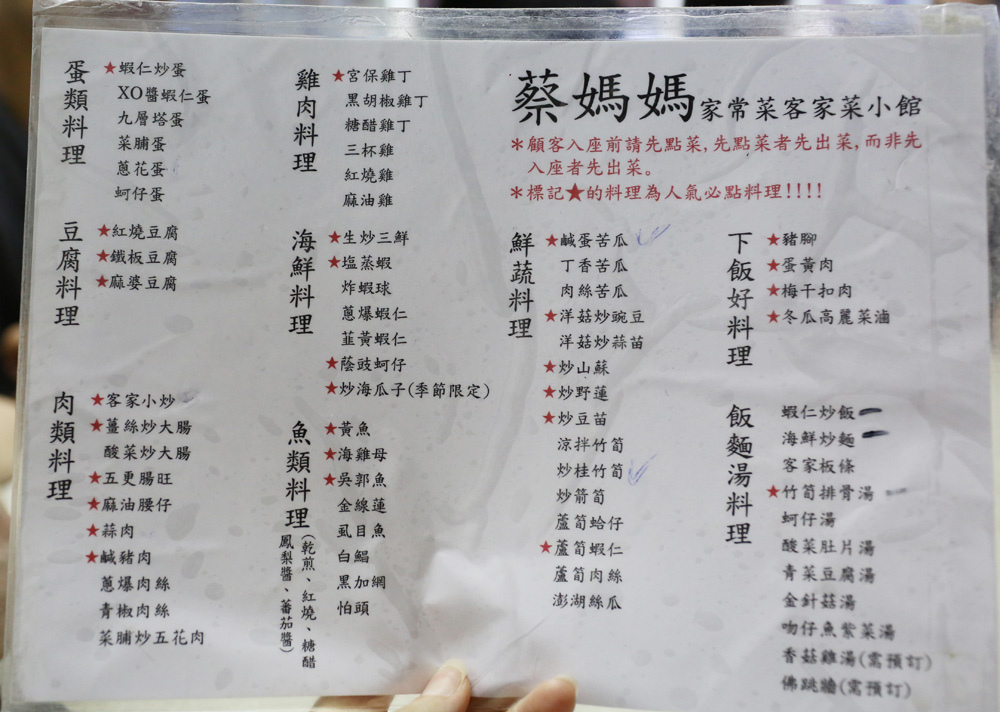 蔡媽媽家常菜客家菜小館
*顧客入座前請先點菜,先點菜者先出菜,而非先
入座者先出菜。
*標記★的料理為人氣必點料理!!!!
蛋類料理
★蝦仁炒蛋
XO醬蝦仁蛋
九層塔蛋
菜脯蛋
蔥花蛋
蚵仔蛋
豆腐料理
★紅燒豆腐
★鐵板豆腐
★麻婆豆腐
肉類料理
★客家小炒
★薑絲炒大腸
酸菜炒大腸
★五更腸旺
★麻油腰仔
★蒜肉
★鹹豬肉
蔥爆肉絲
青椒肉絲
菜脯炒五花肉
雞肉料理
★宮保雞丁
黑胡椒雞丁
糖醋雞丁
三杯雞
紅燒雞
麻油雞
海鮮料理
★生炒三鮮
★塩蒸蝦
炸蝦球
蔥爆蝦仁
韮黃蝦仁
★蔭豉蚵仔
★炒海瓜子(季節限定)
魚類料理
(乾煎、紅燒、糖醋
鳳梨醬、蕃茄醬)
★黃魚
★海雞母
★吳郭魚
金線蓮
虱目魚
白鯧
黑加網
怕頭
鮮蔬料理
★鹹蛋苦瓜
丁香苦瓜
肉絲苦瓜
★洋菇炒豌豆
洋菇炒蒜苗
★炒山蘇
★炒野蓮
★炒豆苗
涼拌竹筍
炒桂竹筍
炒箭筍
蘆筍蛤仔
★蘆筍蝦仁
蘆筍肉絲
澎湖絲瓜
下飯好料理
★豬腳
★蛋黃肉
★梅干扣肉
★冬瓜高麗菜滷
飯麵湯料理
蝦仁炒飯
海鮮炒麵
客家板條
★竹筍排骨湯
蚵仔湯
酸菜肚片湯
青菜豆腐湯
金針菇湯
吻仔魚紫菜湯
香菇雞湯(需預訂)
佛跳牆(需預訂)